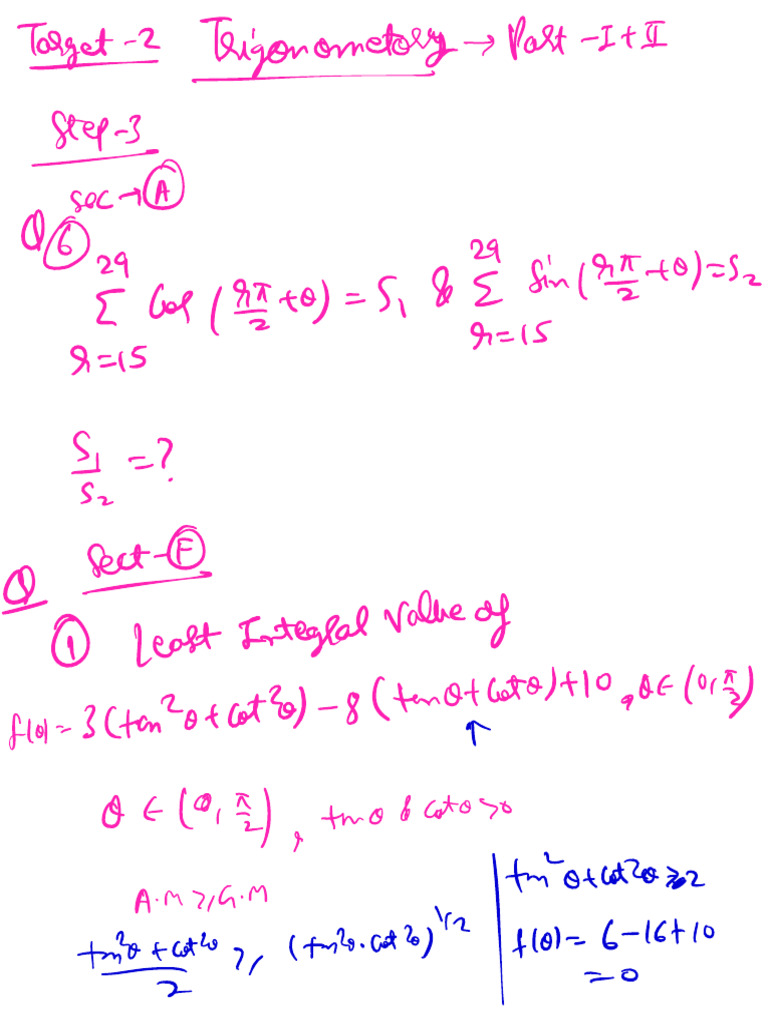 Target-2 Trigonometory → Part-I+II
Step-3
sec → A
Q 6
29 ∑ r=15 Cos(rπ/2+θ) = S₁ & 29 ∑ r=15 Sin(rπ/2+θ) = S₂
S₁/S₂ = ?
Q Sect-F
① Least Integral Value of
f(θ) = 3(tan²θ+cot²θ) - 8(tanθ+cotθ)+10, θ∈(0,π/2)
↑
θ ∈ (0,π/2), tanθ & cotθ>0
A.M ≥ G.M
(tan²θ + cot²θ)/2 ≥ (tan²θ·cot²θ)^1/2
tan²θ+cot²θ ≥ 2
f(θ) = 6-16+10
= 0